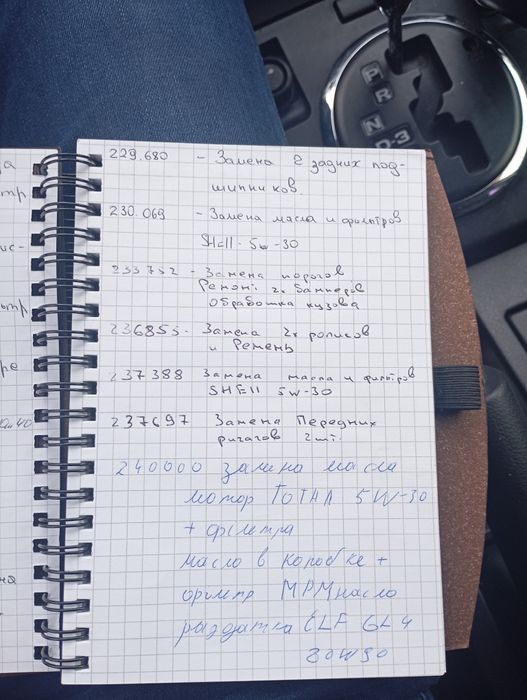 P
R
N
D-3
229.680 - Замена 2 задних под-
шипников.
230.069 - Замена масла и фильтров
SHell-5w-30
233752 - Замена порогов
Ремонт 2х бамперов
Обработка кузова
236855. Замена 2х роликов
и Ремень
237388 Замена масла и фильтров
SHEll 5w-30
237697 Замена Передних
рычагов 2шт.
240000 замина масла
мотор TOTAA 5W-30
+ філтра
масло в коробке +
філтр МРМ масло
раздатка ELF GL4
80W90